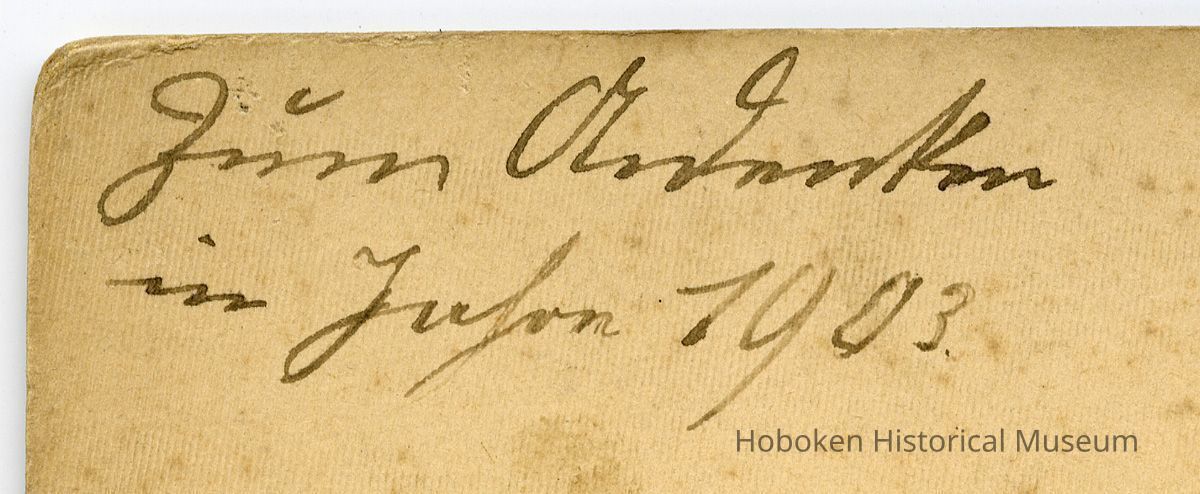 Zum Andenken
in Jahre 1903.
Hoboken Historical Museum